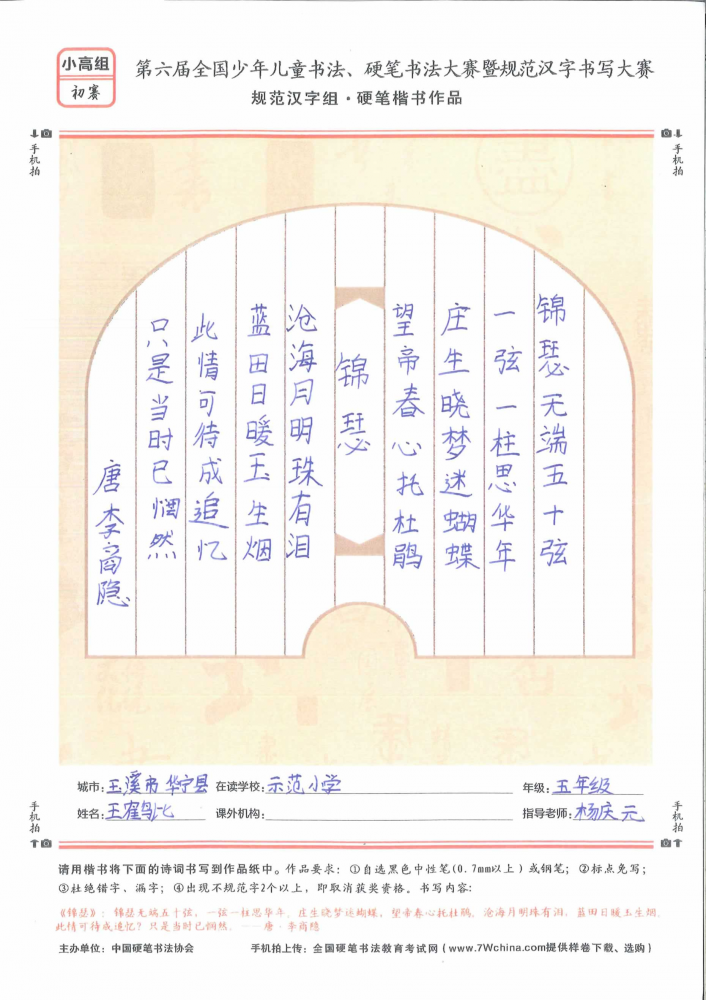 小高组
初赛
第六届全国少年儿童书法、硬笔书法大赛暨规范汉字书写大赛
规范汉字组·硬笔楷书作品
手机拍
手机拍
锦瑟无端五十弦
一弦一柱思华年
庄生晓梦迷蝴蝶
望帝春心托杜鹃
锦瑟
沧海月明珠有泪
蓝田日暖玉生烟
此情可待成追忆
只是当时已惘然
唐李商隐
城市:玉溪市华宁县 在读学校:示范小学 年级:五年级
姓名:王 课外机构: 指导老师:杨庆元
手机拍
手机拍
请用楷书将下面的诗词书写到作品纸中。作品要求:①自选黑色中性笔(0.7mm以上)或钢笔;②标点免写;
③杜绝错字、漏字;④出现不规范字2个以上,即取消获奖资格。书写内容:
《锦瑟》:锦瑟无端五十弦,一弦一柱思华年。庄生晓梦迷蝴蝶,望帝春心托杜鹃。沧海月明珠有泪,蓝田日暖玉生烟。
此情可待成追忆?只是当时已惘然。——唐·李商隐
主办单位:中国硬笔书法协会 手机拍上传:全国硬笔书法教育考试网(www.7Wchina.com提供样卷下载、选购)